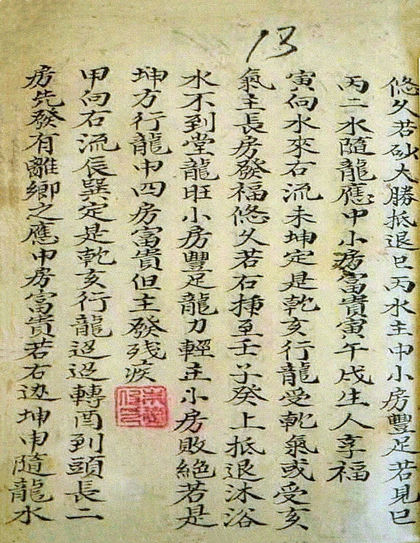 13
悠久若砂太勝抵退巳丙水主中小房豐足若見巳
丙二水隨龍應中小房富貴寅午戌生人享福
寅向水來右流未坤定是乾亥行龍受乾氣或受亥
氣主長房發福悠久若右揷至壬子癸上抵退沐浴
水不到堂龍旺小房豐足龍力輕主小房敗絕若是
坤方行龍申四房富貴但主發残疾
甲向右流辰巽定是乾亥行龍迢迢轉酉到頭長二
房先發有離鄉之應中房富貴若右边坤申隨龍水